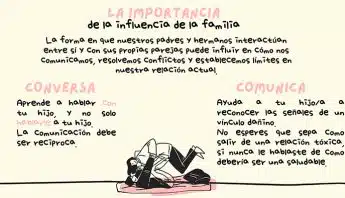 LA IMPORTANCIA
de la influencia de la familia
La forma en que nuestros padres y hermanos interactúan
entre sí y con sus propias parejas puede influir en cómo nos
comunicamos, resolvemos conflictos y establecemos límites en
nuestra relación actual.
CONVERSA
Aprende a hablar con
tu hijo, y no solo
hablarle a tu hijo.
La comunicación debe
ser recíproca.
COMUNICA
Ayuda a tu hijo/a a
reconocer las señales de un
vínculo dañino.
No esperes que sepa como
salir de una relación tóxica,
si nunca le hablaste de como
debería ser una saludable.